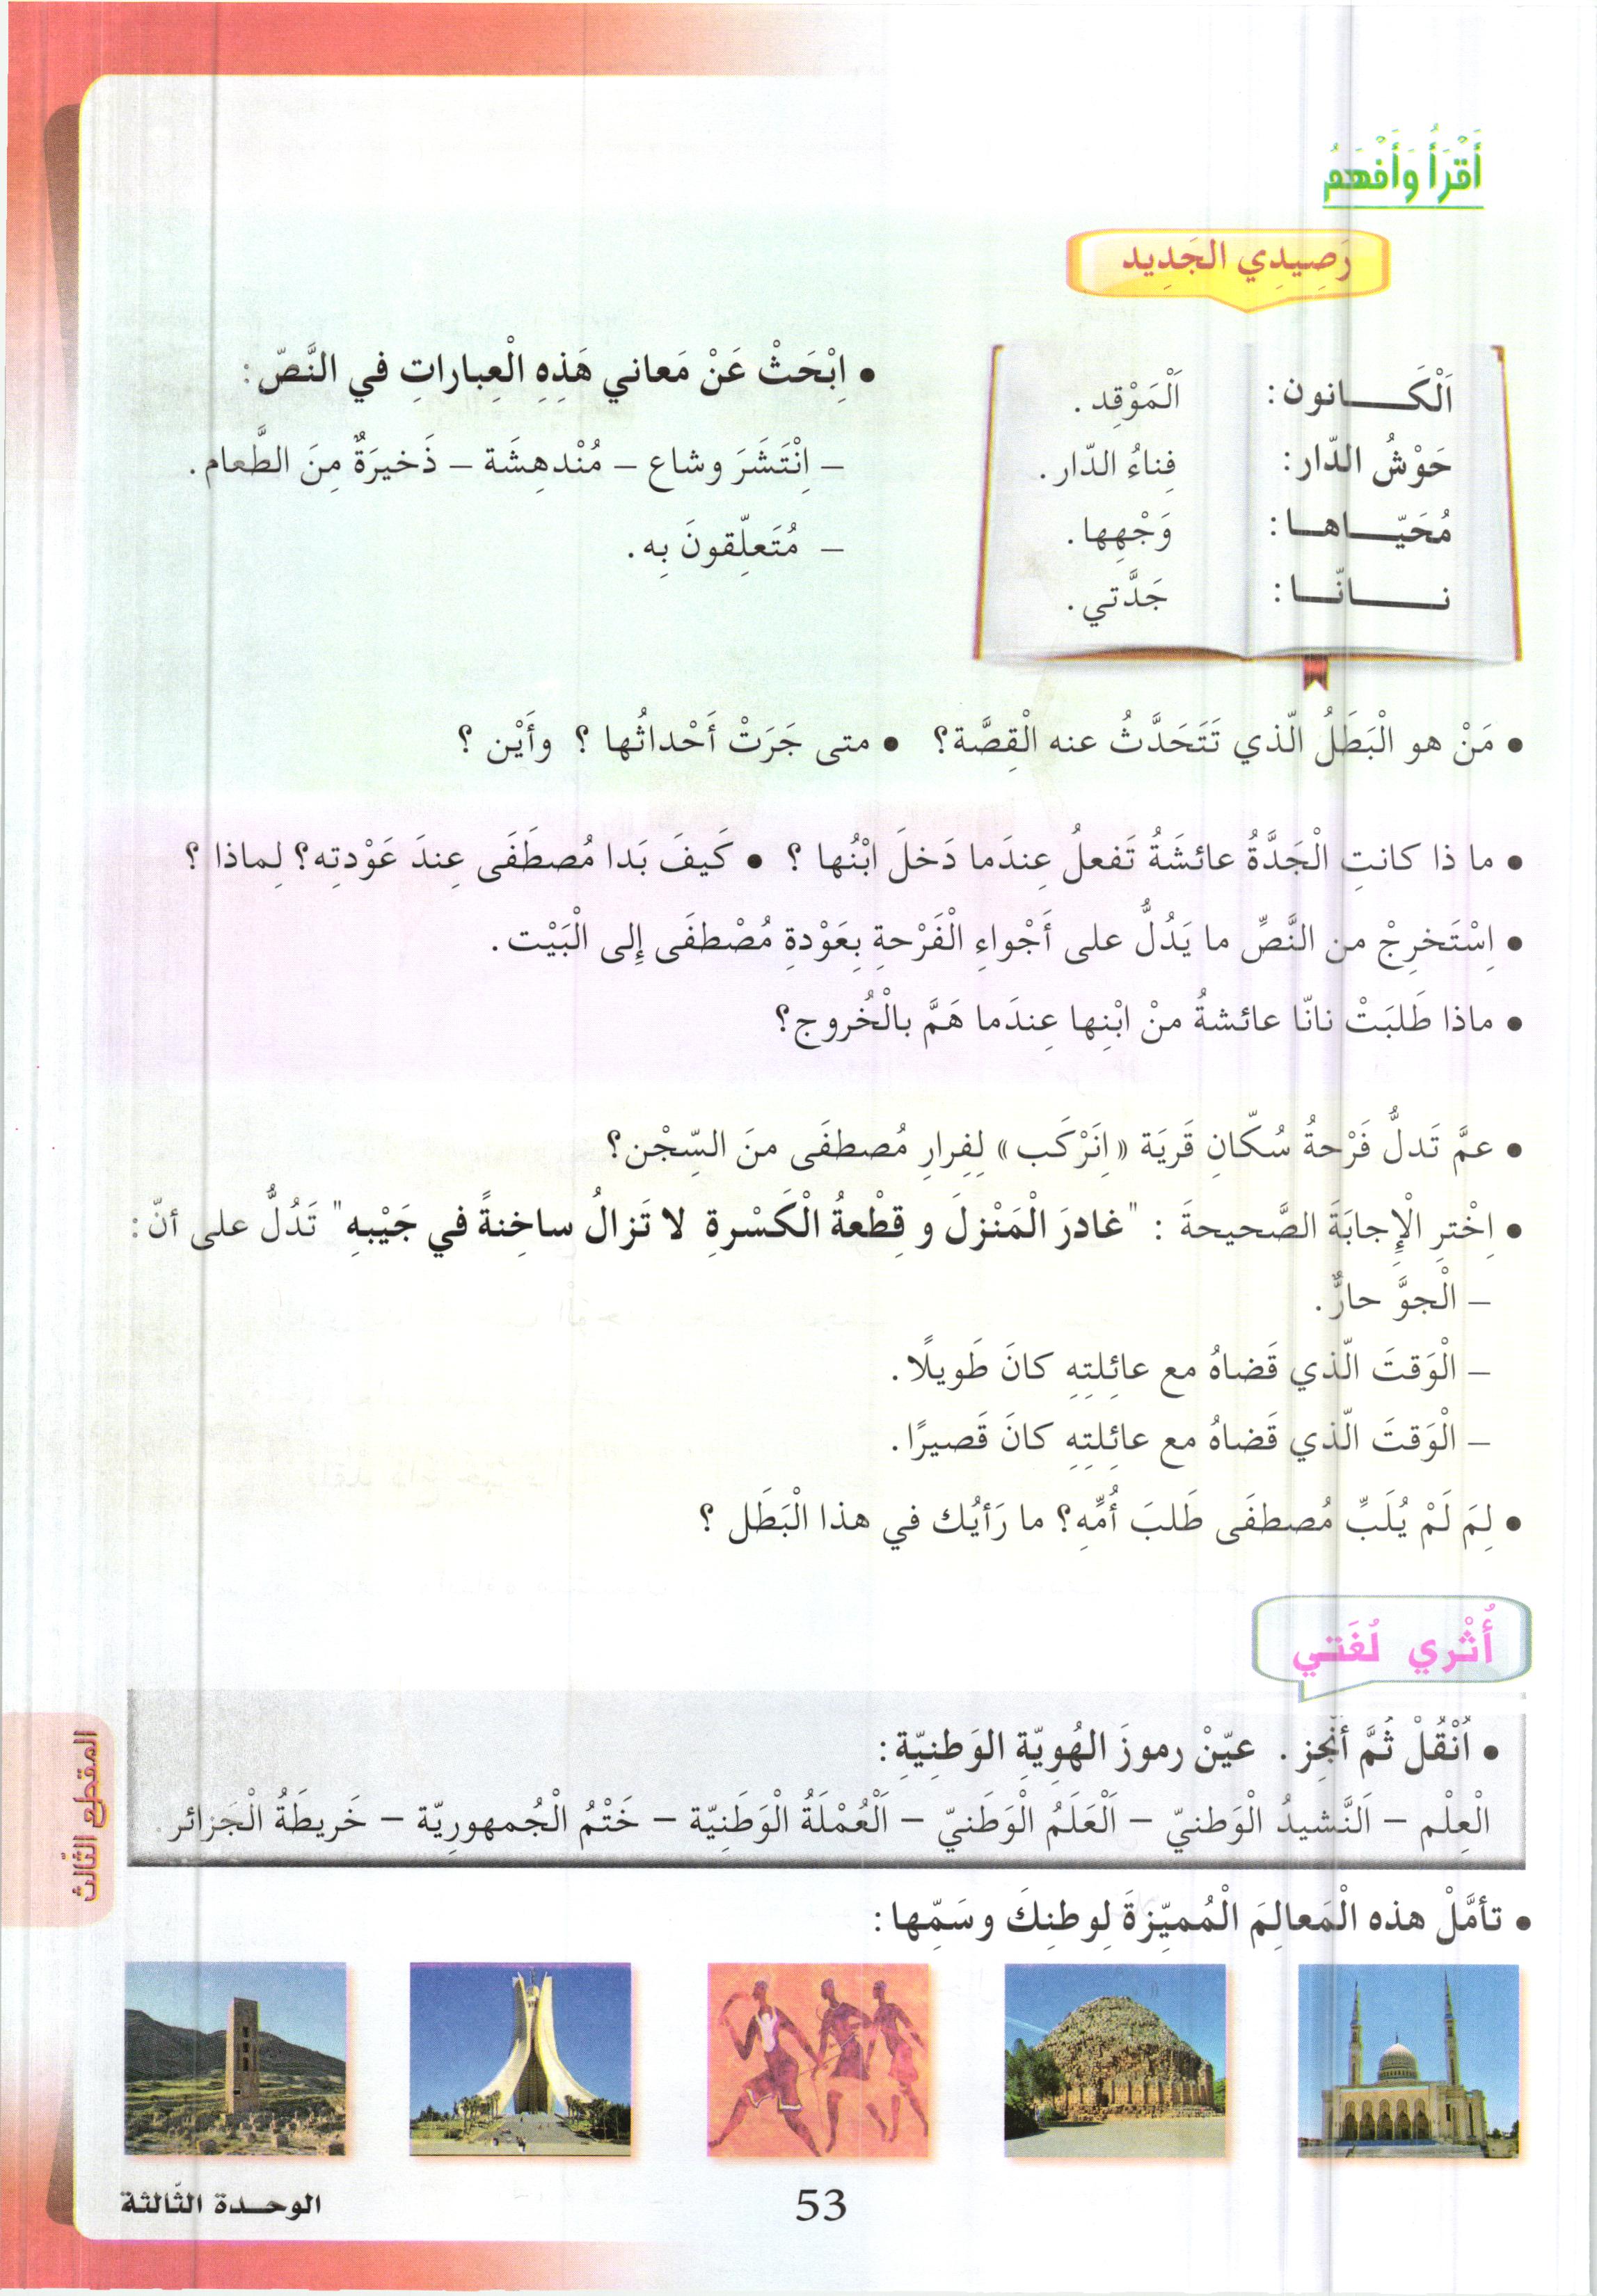 أَقْرَأُ وَأَفْهَمُ
رَصِيدِي الجَدِيد
اَلْكَـــــانون: اَلْمَوْقِد.
حَوْشُ الدّار: فِناءُ الدّار.
مُحَيّـــاهـا: وَجْهِها.
نـــــانّـــا: جَدَّتي.
• اِبْحَثْ عَنْ مَعاني هَذِهِ الْعِباراتِ في النَّصّ:
– اِنْتَشَرَ وشاع – مُنْدهِشَة – ذَخيرَةٌ مِنَ الطَّعام.
– مُتَعلِّقونَ بِه.
• مَنْ هو الْبَطَلُ الّذي تَتَحَدَّثُ عنه الْقِصَّة؟ • متى جَرَتْ أَحْداثُها ؟ وأَيْن ؟
• ما ذا كانتِ الْجَدَّةُ عائشَةُ تَفعلُ عِندَما دَخلَ ابْنُها ؟ • كَيفَ بَدا مُصطَفَى عِندَ عَوْدتِه؟ لِماذا ؟
• اِسْتَخرِجْ من النَّصِّ ما يَدُلُّ على أَجْواءِ الْفَرْحةِ بِعَوْدةِ مُصْطفَى إِلى الْبَيْت.
• ماذا طَلبَتْ نانّا عائشةُ منْ ابْنِها عِندَما هَمَّ بالْخُروج؟
• عمَّ تَدلُّ فَرْحةُ سُكّانِ قَريَة «اِنَرْكَب» لِفِرارِ مُصطفَى منَ السِّجْن؟
• اِخْترِ الْإِجابَةَ الصَّحيحةَ : "غادرَ الْمَنْزلَ و قِطْعةُ الْكَسْرةِ لا تَزالُ ساخِنةً في جَيْبهِ" تَدُلُّ على أنّ:
– الْجوَّ حارٌّ.
– الْوَقتَ الّذي قَضاهُ مع عائِلتِهِ كانَ طَويلًا.
– الْوَقتَ الّذي قَضاهُ مع عائِلتِهِ كانَ قَصيرًا.
• لِمَ لَمْ يُلَبِّ مُصطفَى طَلبَ أُمِّهِ؟ ما رَأيُك في هذا الْبَطَل ؟
أُثْري لُغَتي
• اُنْقُلْ ثُمَّ أنْجِز . عيّنْ رموزَ الهُوِيّةِ الوَطنِيّةِ:
الْعِلْم – اَلنَّشيدُ الْوَطنيّ – اَلْعَلَمُ الْوَطَنيّ – اَلْعُمْلَةُ الْوَطَنِيّة – خَتْمُ الْجُمهورِيّة – خَريطَةُ الْجَزائر.
• تأمَّلْ هذه الْمَعالِمَ الْمُميِّزةَ لِوطنِكَ وسَمِّها:
المقطع الثّالث
53
الوحـدة الثّالثة